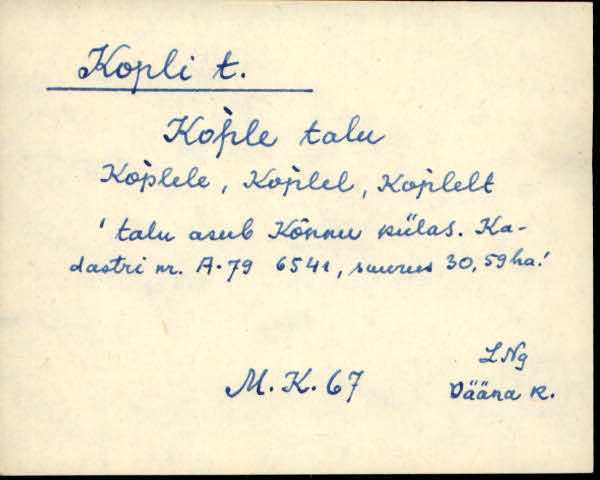 Kopli t.
Kop̀le talu
Kop̀lele, Kop̀lel, Kop̀lelt
' talu asub Kõnnu külas. Ka-
dastri nr. A-79 6541, suurus 30,59 ha.'
LNg
M. K. 67
Vääna k.